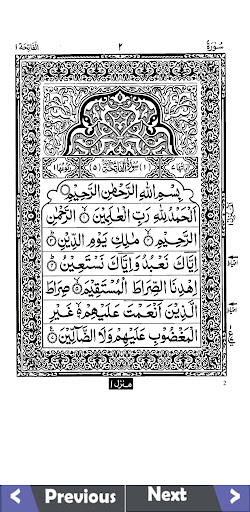 سُورَة ٢ اَلْفَاتِحَة ١
(١) سُوْرَةُ الْفَاتِحَةِ (٥)
بِسْمِ اللهِ الرَّحْمٰنِ الرَّحِيْمِ
اَلْحَمْدُ لِلّٰهِ رَبِّ الْعٰلَمِيْنَ ۙ﴿١﴾ الرَّحْمٰنِ
الرَّحِيْمِ ۙ﴿٢﴾ مٰلِكِ يَوْمِ الدِّيْنِ ؕ﴿٣﴾
اِيَّاكَ نَعْبُدُ وَاِيَّاكَ نَسْتَعِيْنُ ؕ﴿٤﴾
اِهْدِنَا الصِّرَاطَ الْمُسْتَقِيْمَ ۙ﴿٥﴾ صِرَاطَ
الَّذِيْنَ اَنْعَمْتَ عَلَيْهِمْ ۙ۬﴿٦﴾ غَيْرِ
الْمَغْضُوْبِ عَلَيْهِمْ وَلَا الضَّآلِّيْنَ ﴿٧﴾
منزل ١
2
< Previous Next >